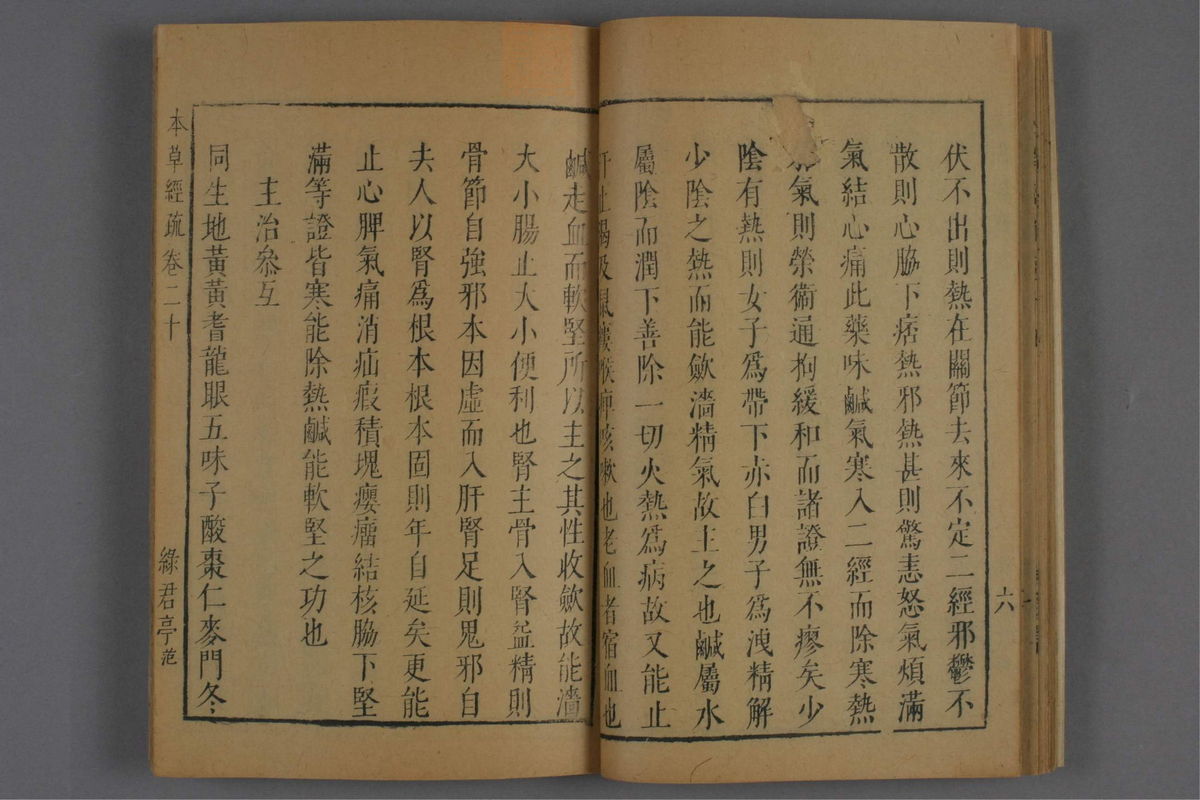 六
伏不出則熱在關節去來不定二經邪鬱不
散則心脇下痞熱邪熱甚則驚恚怒氣煩滿
氣結心痛此藥味鹹氣寒入二經而除寒熱
邪氣則榮衞通拘緩和而諸證無不瘳矣少
陰有熱則女子爲帶下赤白男子爲洩精解
少陰之熱而能歛濇精氣故主之也鹹屬水
屬陰而潤下善除一切火熱爲病故又能止
汗止渴及鼠瘻喉痺咳嗽也老血者宿血也
鹹走血而軟堅所以主之其性收歛故能濇
大小腸止大小便利也腎主骨入腎益精則
骨節自強邪本因虛而入肝腎足則鬼邪自
去人以腎爲根本根本固則年自延矣更能
止心脾氣痛消疝瘕積塊癭瘤結核脇下堅
滿等證皆寒能除熱鹹能軟堅之功也
主治叅互
同生地黃黃耆龍眼五味子酸棗仁麥門冬
本草經疏 卷二十
綠君亭 范